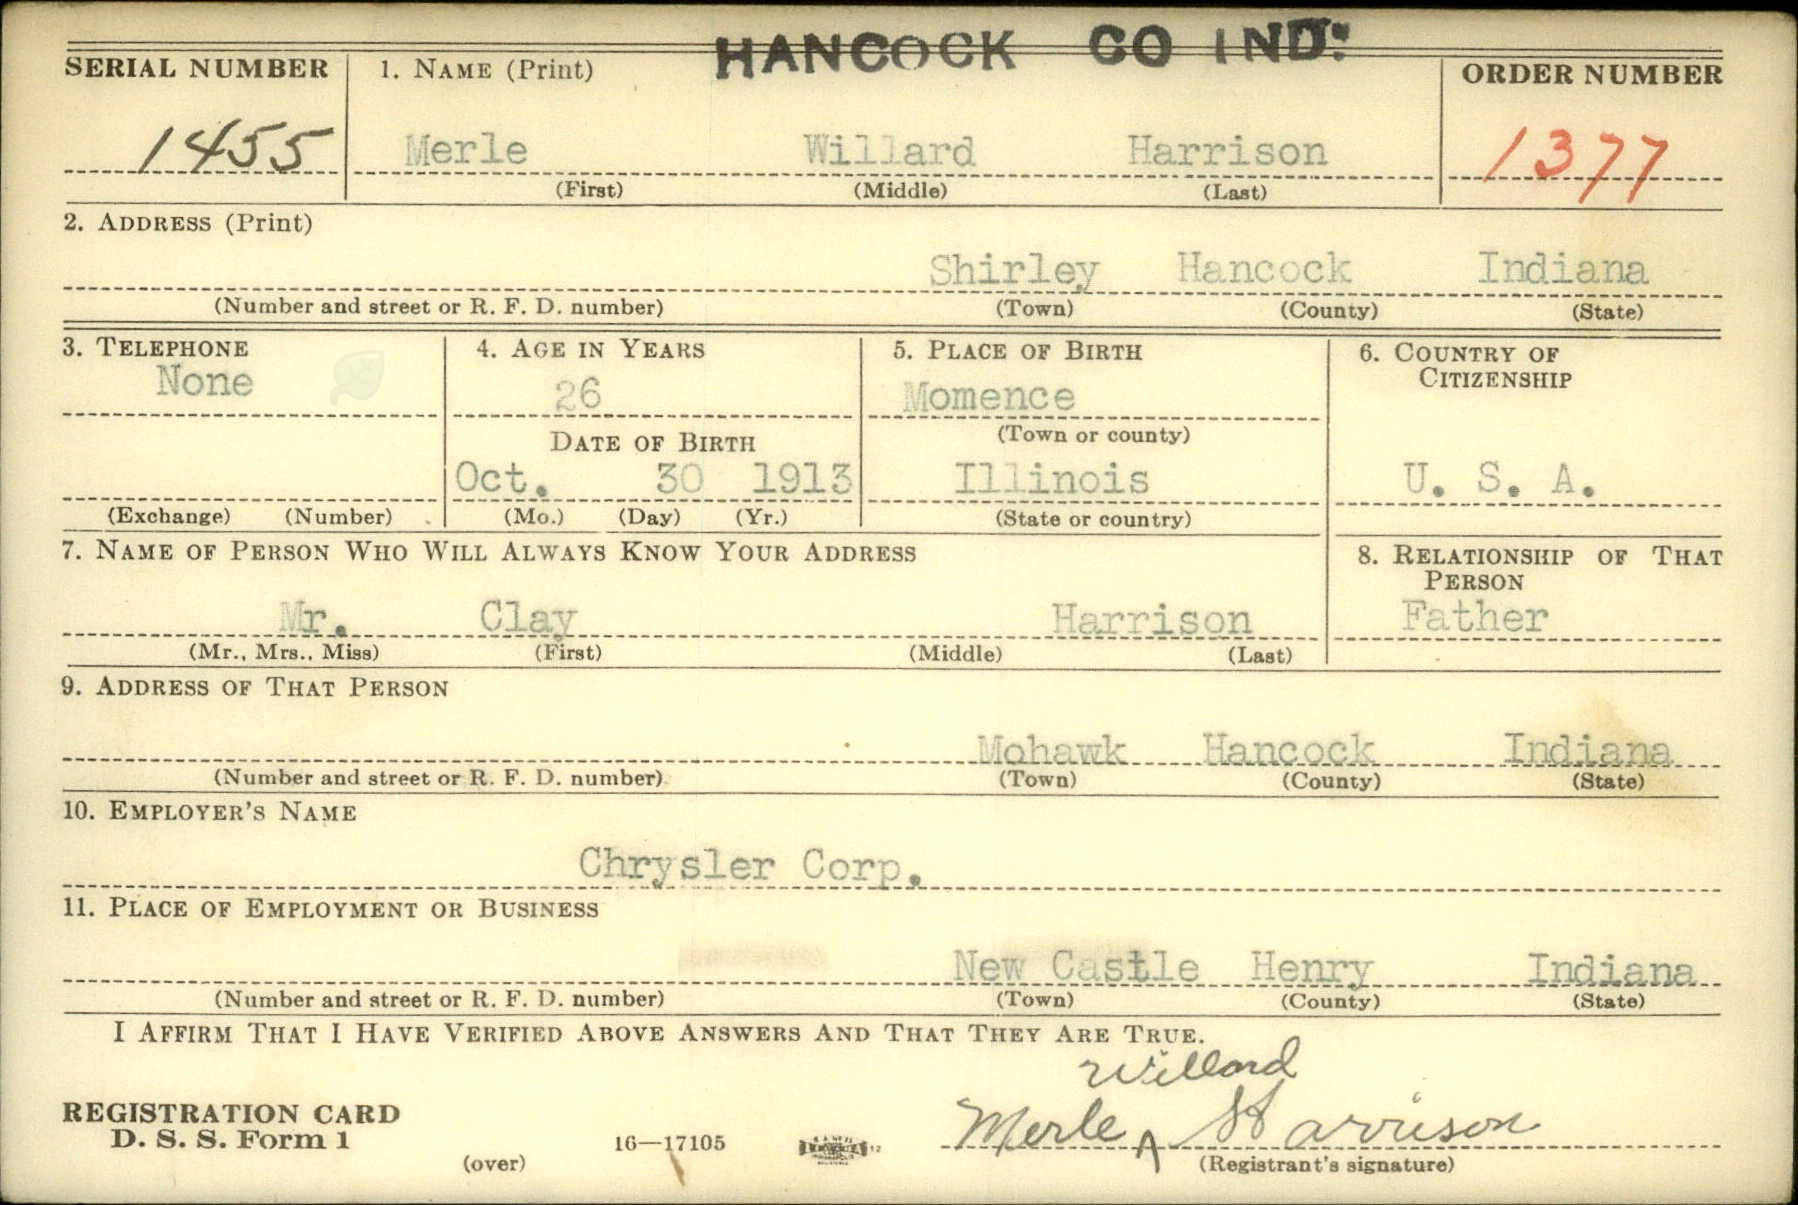 HANCOCK CO IND.
SERIAL NUMBER 1. NAME (Print) ORDER NUMBER
1455 Merle Willard Harrison 1377
(First) (Middle) (Last)
2. ADDRESS (Print)
Shirley Hancock Indiana
(Number and street or R. F. D. number) (Town) (County) (State)
3. TELEPHONE 4. AGE IN YEARS 5. PLACE OF BIRTH 6. COUNTRY OF
CITIZENSHIP
None 26 Momence
DATE OF BIRTH (Town or county)
Oct. 30 1913 Illinois U. S. A.
(Exchange) (Number) (Mo.) (Day) (Yr.) (State or country)
7. NAME OF PERSON WHO WILL ALWAYS KNOW YOUR ADDRESS 8. RELATIONSHIP OF THAT
PERSON
Mr. Clay Harrison Father
(Mr., Mrs., Miss) (First) (Middle) (Last)
9. ADDRESS OF THAT PERSON
Mohawk Hancock Indiana
(Number and street or R. F. D. number) (Town) (County) (State)
10. EMPLOYER'S NAME
Chrysler Corp.
11. PLACE OF EMPLOYMENT OR BUSINESS
New Castle Henry Indiana
(Number and street or R. F. D. number) (Town) (County) (State)
I AFFIRM THAT I HAVE VERIFIED ABOVE ANSWERS AND THAT THEY ARE TRUE.
Willard
REGISTRATION CARD Merle ^ Harrison
D. S. S. Form 1 16—17105 12
(over) (Registrant's signature)